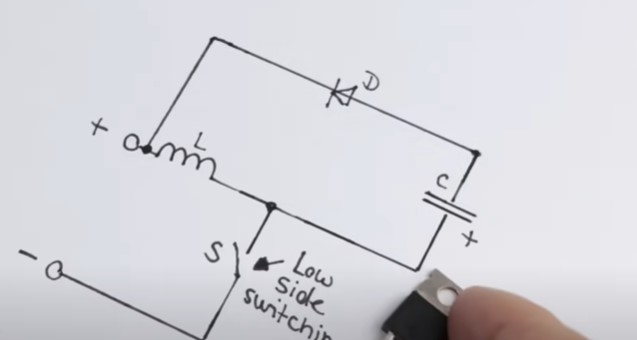 D
+
L
C
+
-
S
Low
side
switchin